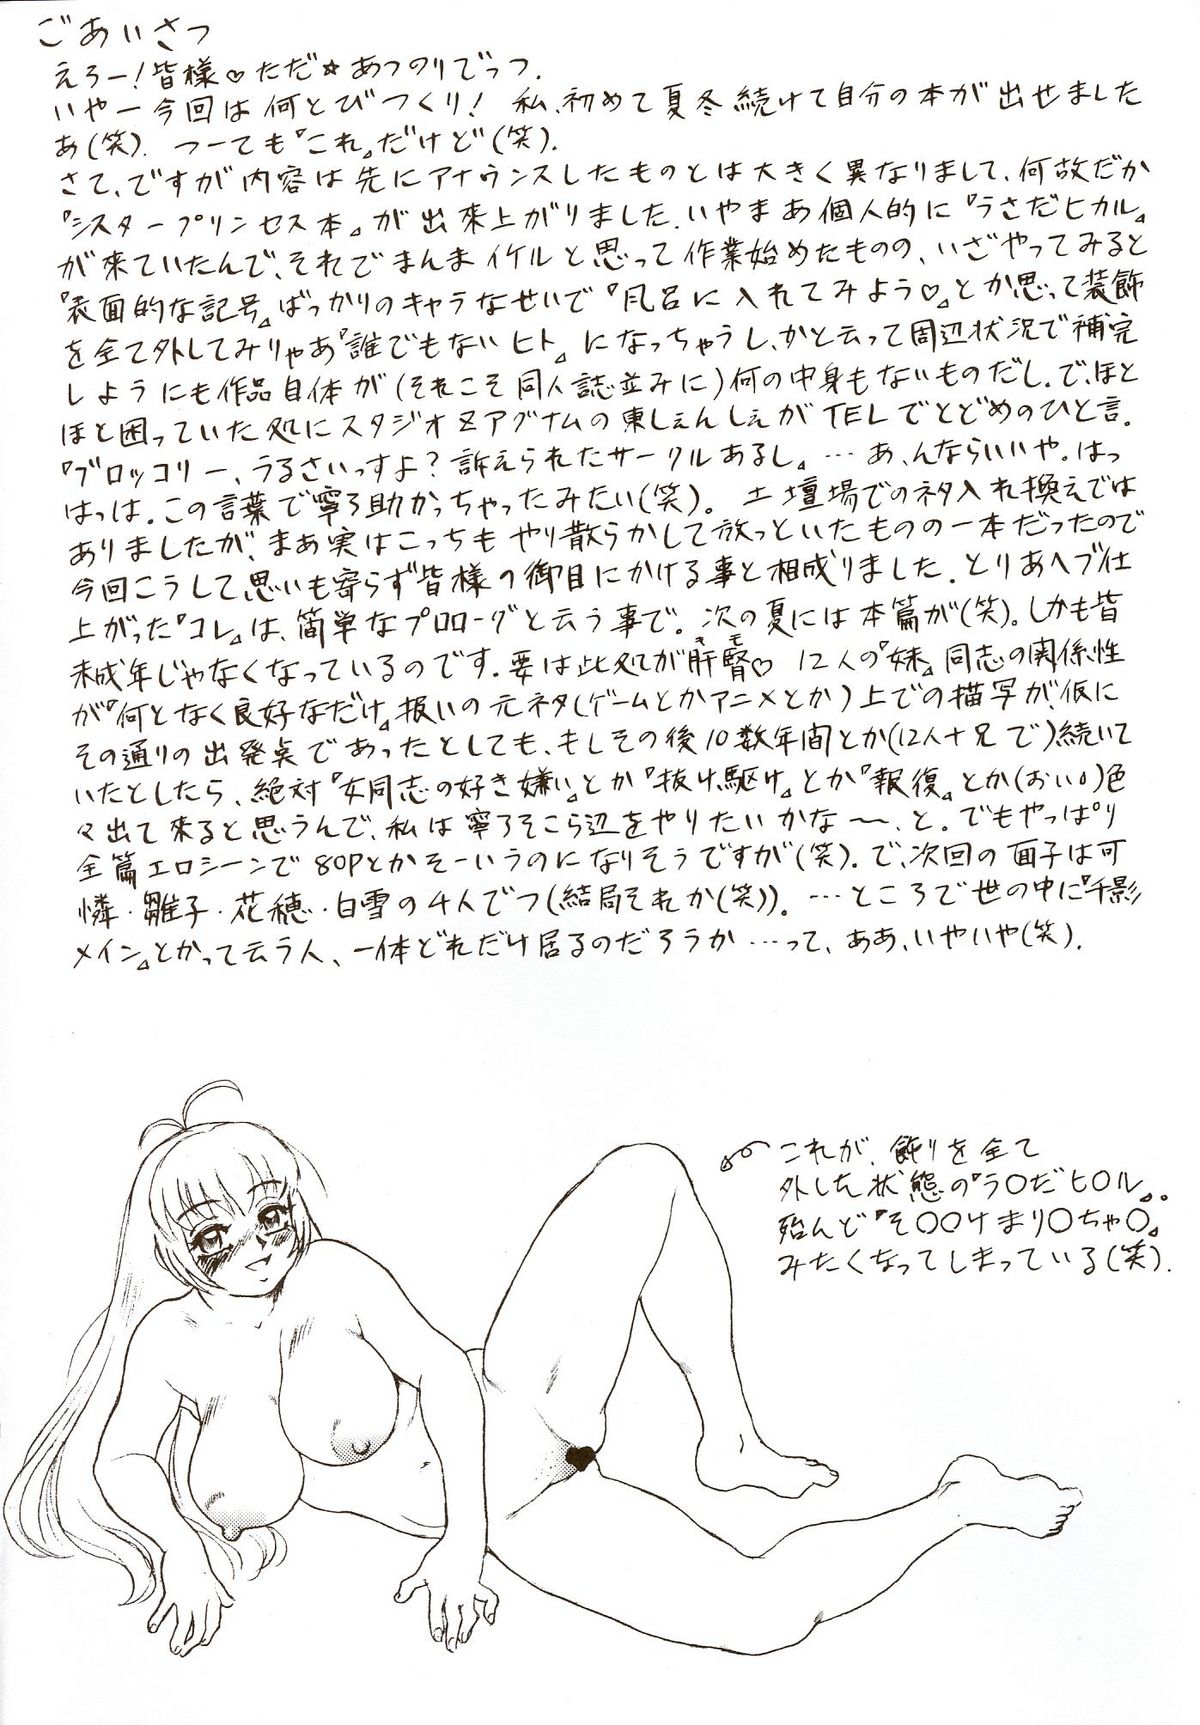 ごあいさつ
えろー!皆様♡ただ☆あつのりでっつ.
いやー今回は何とびつくり! 私、初めて夏冬続けて自分の本が出せました
あ(笑). つーても『これ』だけど(笑).
さて、ですが内容は先にアナウンスしたものとは大きく異なりまして、何故だか
『シスタープリンセス本』が出来上がりました.いやまあ個人的に『うさだヒカル』
が来ていたんで、それでまんまイケルと思って作業始めたものの、いざやってみると
『表面的な記号』ばっかりのキャラなせいで『風呂に入れてみよう♡』とか思って装飾
を全て外してみりゃあ『誰でもないヒト』になっちゃうし、かと云って周辺状況で補完
しようにも作品自体が(それこそ同人誌並みに)何の中身もないものだし.で、ほと
ほと困っていた処にスタジオZアグナムの東しぇんしぇがTELでとどめのひと言.
『ブロッコリー、うるさいっすよ?訴えられたサークルあるし』…あ、んならいいや.はっ
はっは.この言葉で寧ろ助かっちゃったみたい(笑)。土壇場でのネタ入れ換えでは
ありましたが、まあ実はこっちもやり散らかして放っといたものの一本だったので
今回こうして思いも寄らず皆様の御目にかける事と相成りました.とりあへブ仕
上がった『コレ』は、簡単なプロローグと云う事で。次の夏には本篇が(笑)。しかも皆
未成年じゃなくなっているのです.要は此処が肝腎♡ 12人の『妹』同志の関係性
キモ
が『何となく良好なだけ』扱いの元ネタ(ゲームとかアニメとか)上での描写が、仮に
その通りの出発点であったとしても、もしその後10数年間とか(12人+兄で)続いて
いたとしたら、絶対『女同志の好き嫌い』とか『抜け駆け』とか『報復』とか(おい)色
々出て来ると思うんで、私は寧ろそこら辺をやりたいかな〜、と。でもやっぱり
全篇エロシーンで80Pとかそーいうのになりそうですが(笑).で、次回の面子は可
憐・雛子・花穂・白雪の4人でつ(結局それか(笑))。…ところで世の中に『千影
メイン』とかって云う人、一体どれだけ居るのだろうか…って、ああ、いやいや(笑).
これが、飾りを全て
外した状態の『ラ○だヒ○ル』。
殆んど『そ○○けまり○ちゃ○』
みたくなってしまっている(笑).